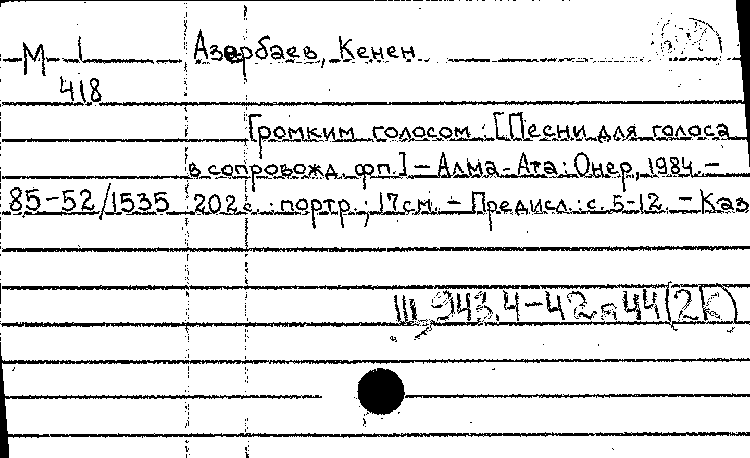 М 1 Азербаев, Кенен
418
Громким голосом : [Песни для голоса
в сопровожд. фп.] – Алма-Ата : Онер, 1984. –
85-52/1535 202 с. : портр. ; 17 см. – Предисл.: с. 5-12. – Каз
Щ 943.4-42я44(2К)